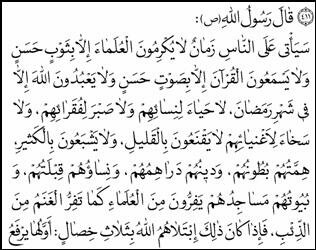 ﴿٤١١﴾ قَالَ رَسُولُ اللهِ (ص):
سَيَأْتِي عَلَى النَّاسِ زَمَانٌ لَا يُكْرِمُونَ الْعُلَمَاءَ إِلَّا بِثَوْبٍ حَسَنٍ
وَلَا يَسْمَعُونَ الْقُرْآنَ إِلَّا بِصَوْتٍ حَسَنٍ وَلَا يَعْبُدُونَ اللهَ إِلَّا
فِي شَهْرِ رَمَضَانَ. لَا حَيَاءَ لِنِسَائِهِمْ وَلَا صَبْرَ لِفُقَرَائِهِمْ، وَلَا
سَخَاءَ لِأَغْنِيَائِهِمْ لَا يَقْنَعُونَ بِالْقَلِيلِ، وَلَا يَشْبَعُونَ بِالْكَثِيرِ،
هِمَّتُهُمْ بُطُونُهُمْ، وَدِينُهُمْ دَرَاهِمُهُمْ، وَنِسَاؤُهُمْ قِبْلَتُهُمْ، وَ
بُيُوتُهُمْ مَسَاجِدُهُمْ يَفِرُّونَ مِنَ الْعُلَمَاءِ كَمَا تَفِرُّ الْغَنَمُ مِنَ
الذِّئْبِ، فَإِذَا كَانَ ذَلِكَ إِبْتَلَاهُمُ اللهُ بِثَلَاثِ خِصَالٍ: أَوَّلُهَا يَرْفَعُ